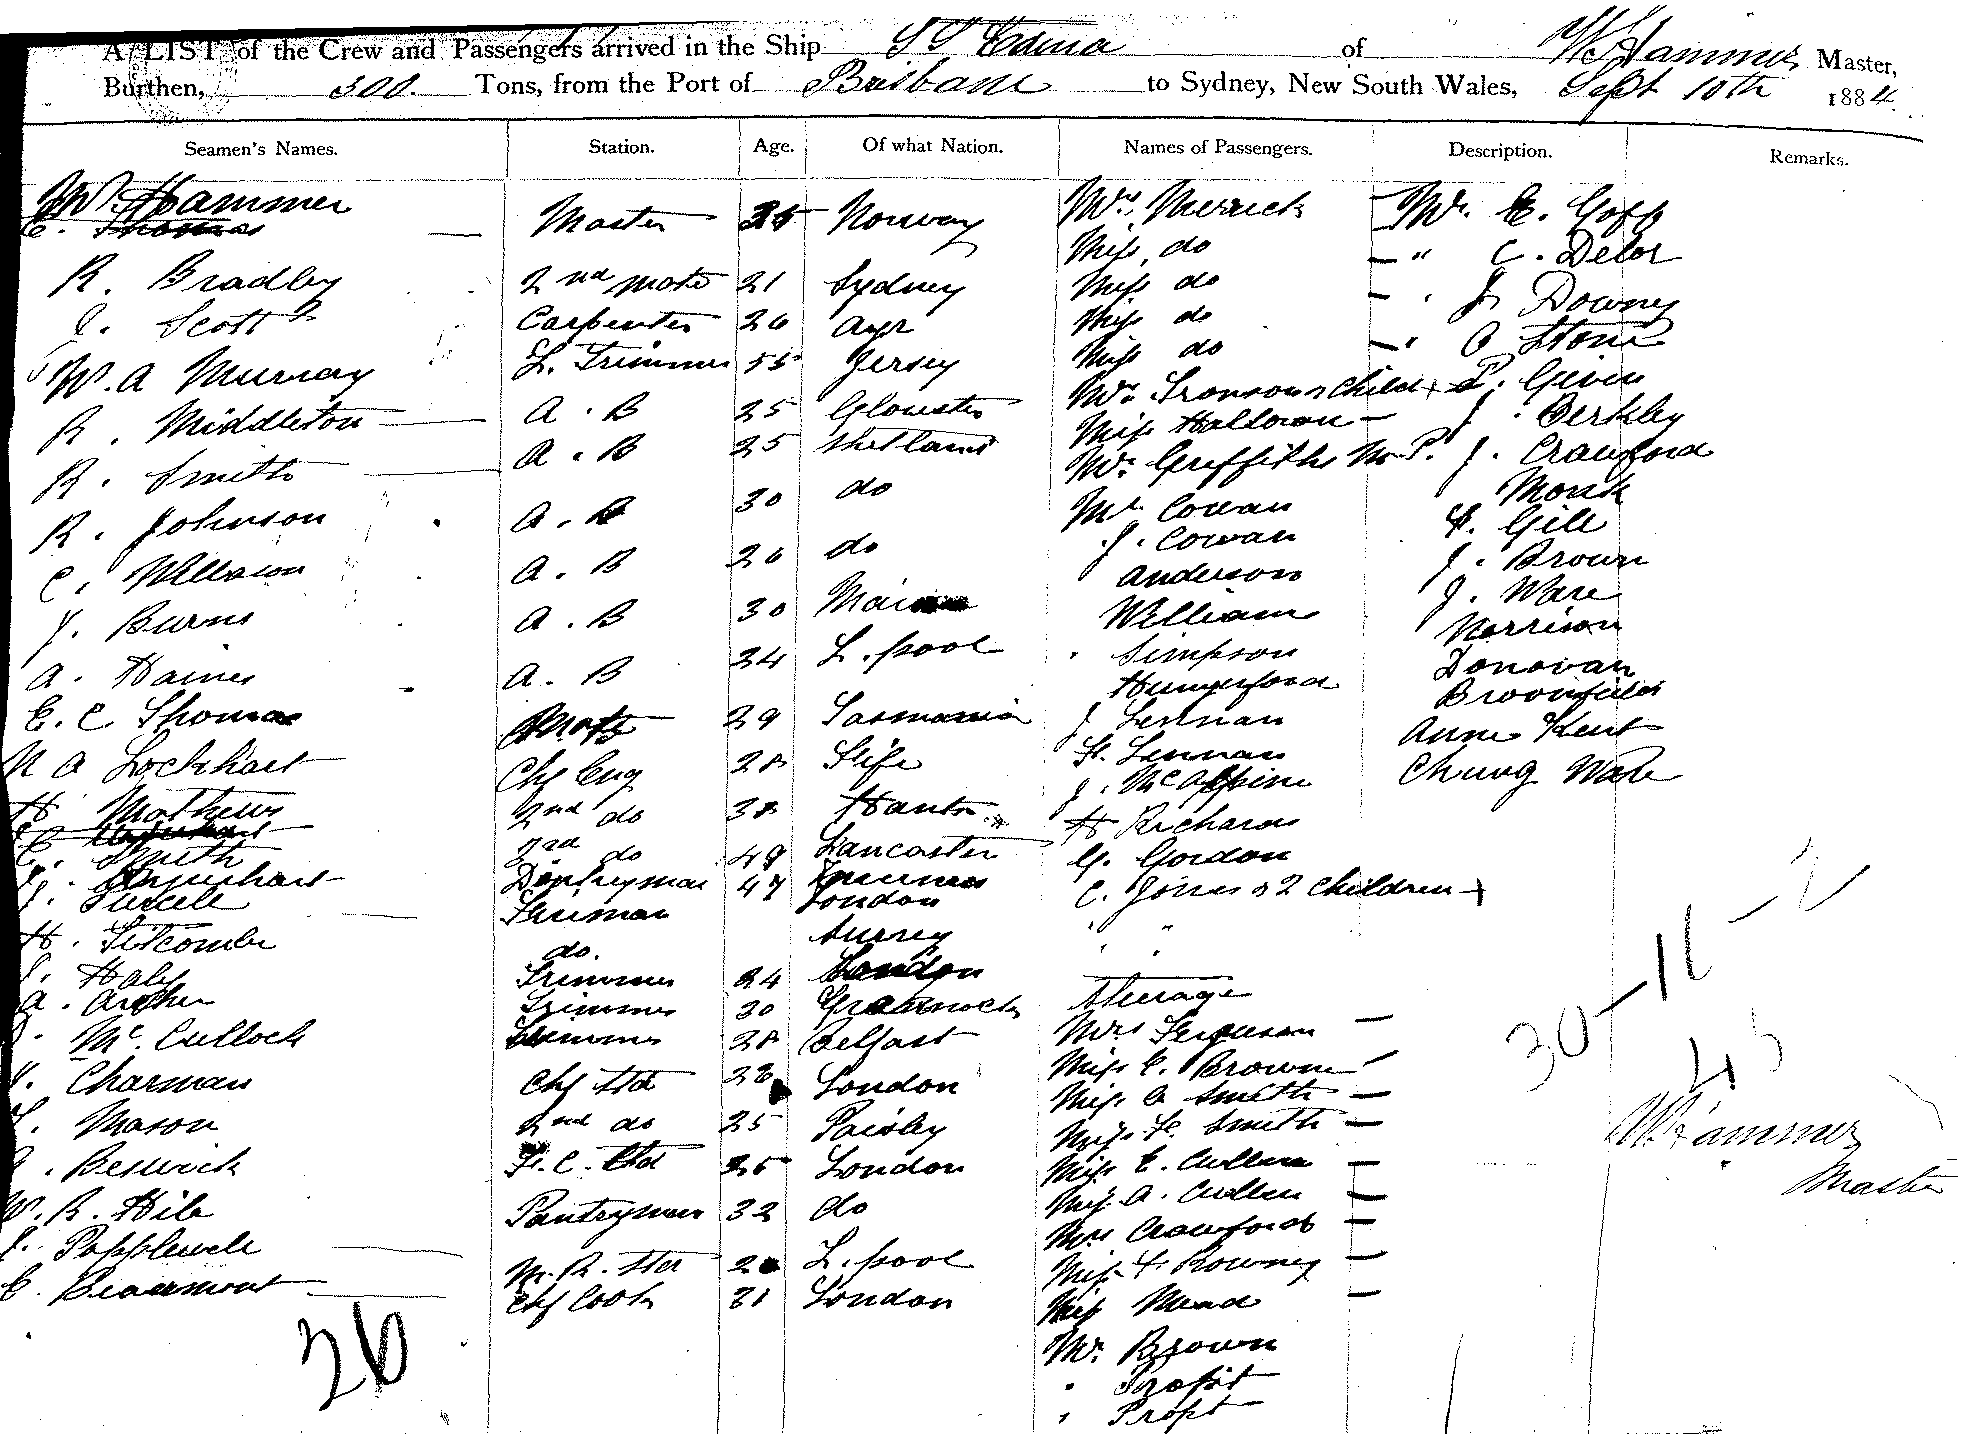 A LIST of the Crew and Passengers arrived in the Ship SS Edina of W Hammer Master,
Burthen, 300 Tons, from the Port of Brisbane to Sydney, New South Wales, Sept 10th 1884
Seamen's Names. Station. Age. Of what Nation. Names of Passengers. Description. Remarks.
W. Hammer Master 35 Norway Mrs Merrick Mr. E. Goff
E. Thomas Miss do " C. Delor
R. Bradley 2nd mate 21 Sydney Miss do J Downey
J. Scott Carpenter 26 Ayr Miss do Stone
W. A Murray L. Trimmer 55 Jersey Miss do
R. Middleton A. B 25 Gloucster Mrs Tronson & child P. Given
R. Smith A. B 25 Shetland Miss Halloran J. Berkley
R. Johnson A. B 30 do Mr Griffiths M. P. J. Crawford
C. Williason A. B 26 do Mr Cowan Monk
J. Burns A. B 30 J. Cowan H. Gill
A. Haines A. B 24 L. pool Anderson J. Brown
E. C Thomas Mate 29 Tasmania William J. Ware
N A Lockhart Chf Eng 28 Fife Simpson Morrison
H Mathews 2nd do 38 Hants Hungerford Donovan
Smith 3rd do 49 Lancaster J Lennan Broomfield
J. Urquhart Donkeyman 47 Inverness H. Lennan Anne Kent
J. Tuxele Fireman London J. McAlpine Chung Wah
H. Titcombe do. Surrey H Richards
J. Haly Trimmer 24 London G. Gordon
A. Archer Trimmer 30 Greenock C. Jones & 2 children
McCulloch Trimmer 28 Belfast Steerage
Charman Chf Std London Mrs Ferguson
Mason 2nd do 25 Paisley Miss E. Brown
Beswick F. C. Std 25 London Miss A Smith
W. R. Hile Pantryman 32 do Miss F. Smith
J. Popplewell M. R. Ster L. pool Miss E. Cullen
C. Beaumont Chf Cook 31 London Miss A. Cullen
Mrs Crawford
Miss F. Rowney
Miss Mead
Mr. Brown
" Propst
" Propt
26
30-11-2
43
W Hammer
Master